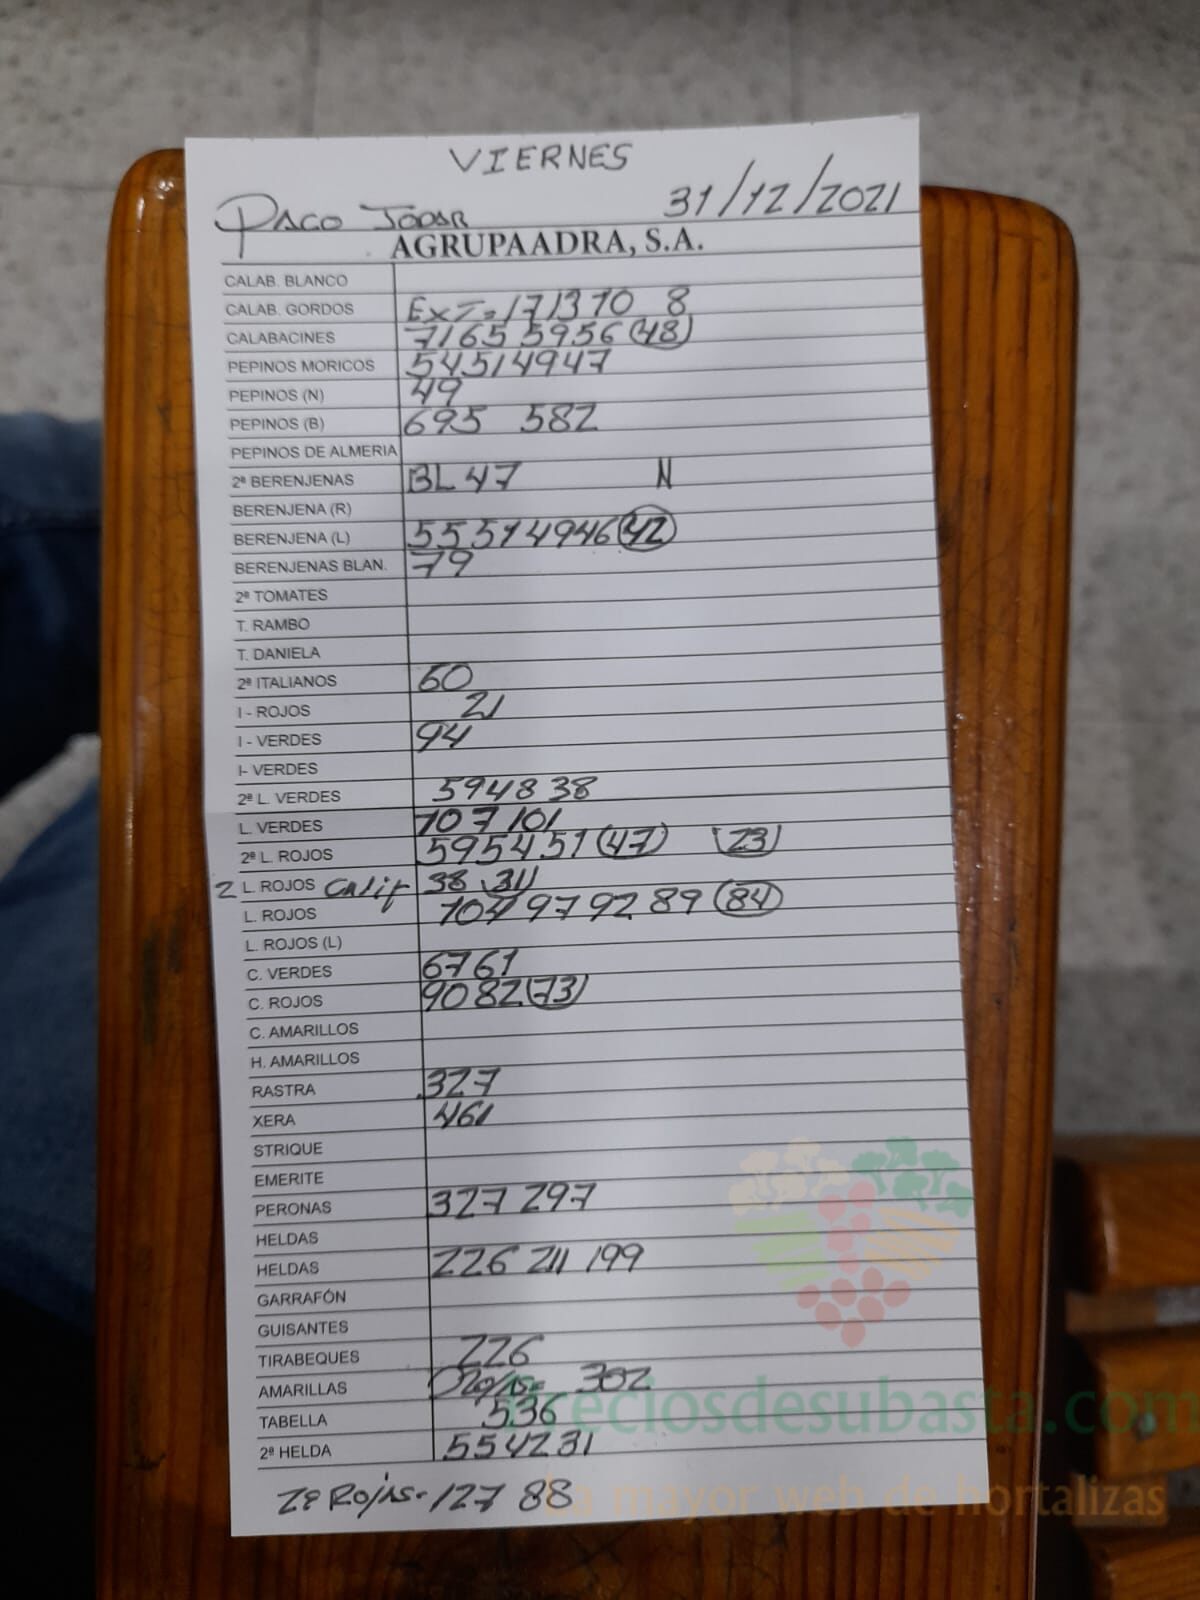 VIERNES
PACO JODAR 31/12/2021
AGRUPAADRA, S.A.
CALAB. BLANCO
CALAB. GORDOS EXT= 17 13 10 8
CALABACINES 71 65 59 56 (48)
PEPINOS MORICOS 54 51 49 47
PEPINOS (N) 49
PEPINOS (B) 695 582
PEPINOS DE ALMERIA
2ª BERENJENAS BL 47 N
BERENJENA (R)
BERENJENA (L) 55 51 49 46 (42)
BERENJENAS BLAN. 79
2ª TOMATES
T. RAMBO
T. DANIELA
2ª ITALIANOS 60
I - ROJOS 21
I - VERDES 94
I- VERDES
2ª L. VERDES 59 48 38
L. VERDES 107 101
2ª L. ROJOS 59 54 51 (47) (23)
2 L. ROJOS Calif 38 31
L. ROJOS 104 97 92 89 (84)
L. ROJOS (L)
C. VERDES 67 61
C. ROJOS 90 82 (73)
C. AMARILLOS
H. AMARILLOS
RASTRA 327
XERA 461
STRIQUE
EMERITE
PERONAS 327 297
HELDAS
HELDAS 226 211 199
GARRAFÓN
GUISANTES
TIRABEQUES 226
AMARILLAS 302
TABELLA 536
2ª HELDA 55 42 31
2ª Rojas- 127 88
preciosdesubasta.com
La mayor web de hortalizas